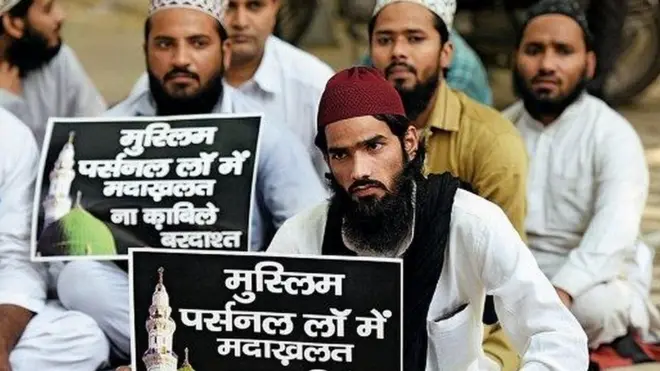 मुस्लिम
पर्सनल लॉ में
मदाख़लत
ना क़ाबिले
बरदाश्त
मुस्लिम
पर्सनल लॉ में
मदाख़लत